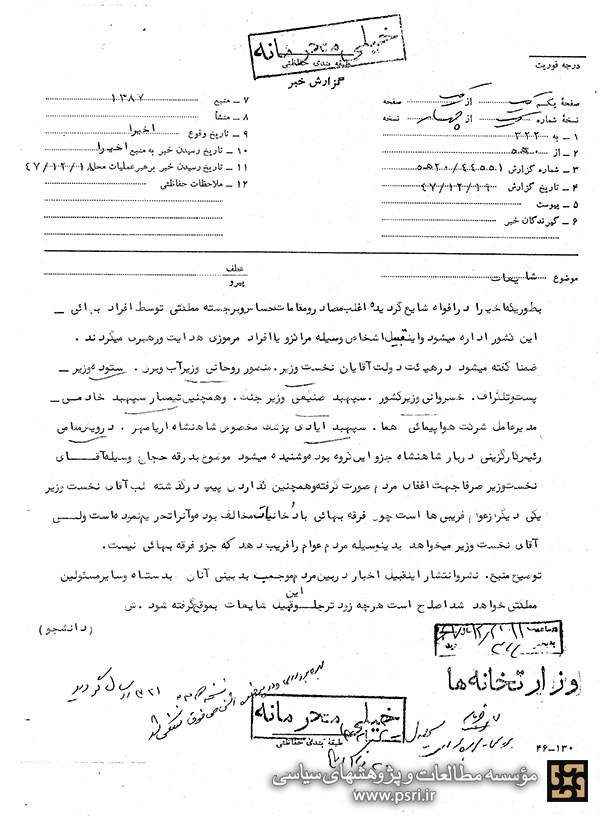 خیلی محرمانه
طبقه بندی حفاظتی
گزارش خبر
درجه فوریت
صفحه یکم از صفحه
نسخه شماره از چهار نسخه
۱ ـ به ۳۲۲
۲ ـ از ۵هـ۲۰
۳ ـ شماره گزارش ۵هـ۲۰/۴۴۵۵۱
۴ ـ تاریخ گزارش ۴۷/۱۲/۱۹
۵ ـ پیوست
۶ ـ گیرندگان خبر
۷ ـ منبع ۱۳۸۷
۸ ـ منشأ
۹ ـ تاریخ وقوع اخیرا
۱۰ ـ تاریخ رسیدن خبر به منبع اخیرا
۱۱ ـ تاریخ رسیدن خبر برهبر عملیات محل ۴۷/۱۲/۱۸
۱۲ ـ ملاحظات حفاظتی
موضوع شایعات
عطف
پیرو
بطوریکه اخیرا در افواه شایع گردیده اغلب مصادر و مقامات حساس و برجسته مملکتی توسط افراد بهائی ـ
این کشور اداره میشود و اینقبیل اشخاص وسیله مراکز و یا افراد مرموزی هدایت و رهبری میگردند .
ضمنا گفته میشود در هیئت دولت آقایان نخست وزیر. منصور روحانی وزیر آب و برق . ستوده وزیر ـ
پست و تلگراف. خسروانی وزیر کشور . سپهبد صنیعی وزیر جنگ. و همچنین تیمسار سپهبد خادمی ـ
مدیر عامل شرکت هواپیمائی هما. سپهبد ایادی پزشک مخصوص شاهنشاه آریامهر . درویش نظامی
رئیس کارگزینی دربار شاهنشاه جزو این گروه بوده و شنیده میشود موضوع بدرقه حجاج وسیله آقــای
نخست وزیر صرفا جهت اغفال مردم صورت گرفته و همچنین نگذاردن پیپ در گذشته لب آقای نخست وزیر
یکی دیگر از عوام فریبی ها است چون فرقه بهائی با دخانیات مخالف بوده و آنرا تحریم نموده است ولــی
آقای نخست وزیر میخواهد بدینوسیله مردم عوام را فریب دهد که جزو فرقه بهائی نیست.
توضیح منبع. نشر و انتشار اینقبیل اخبار در بین مردم موجب بدبینی آنان بدستگاه و سایر مسئولین
مملکتی خواهد شد اصلح است هرچه زودتر جلو این قبیل شایعات بموقع گرفته شود . ش
(دانشجو)
وزارتخانه‌ها
خیلی محرمانه
طبقه بندی حفاظتی
۴۶-۱۳۰
مؤسسه مطالعات و پژوهشهای سیاسی
www.psri.ir